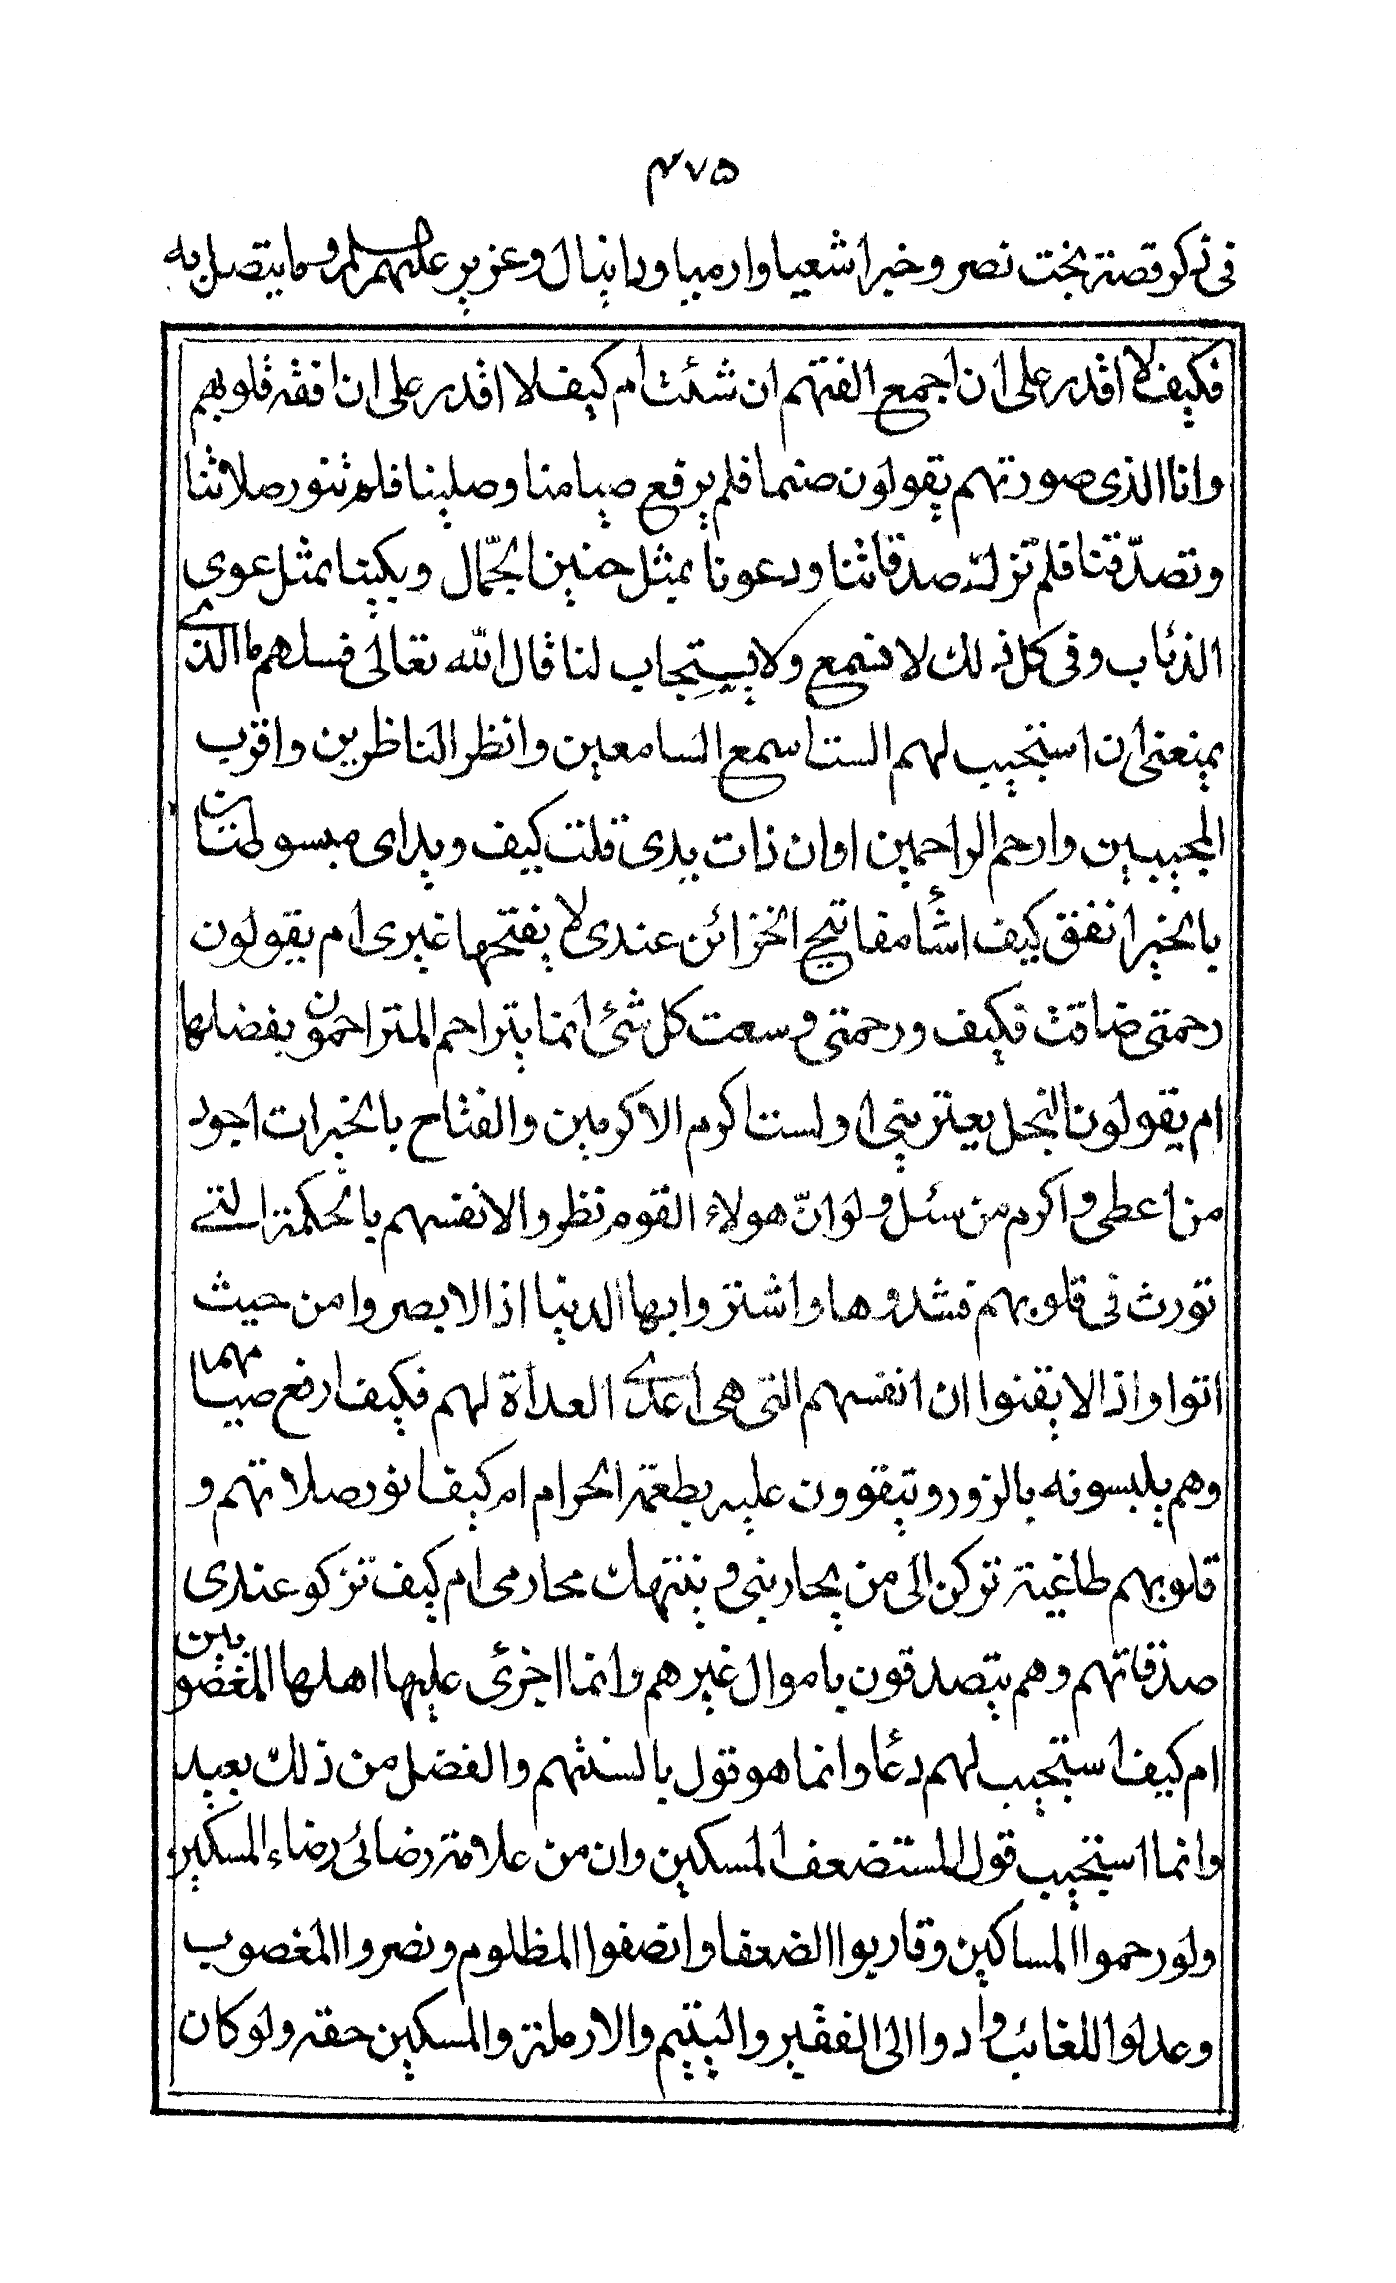 ٤٧٥
فى ذكر قصة بخت نصر وخبر اشعيا وارميا ودانيال وعزير عليهم السلم وما يتصل به
فكيف لا اقدر على ان اجمع الفتهم ان شئت ام كيف لا اقدر على ان افقه قلوبهم
وانا الذى صورتهم يقولون صنما فلم يرفع صيامنا وصلينا فلم تنور صلاتنا
وتصدّقنا فلم تزك صدقاتنا ودعونا بمثل حنين الجّمال وبكينا بمثل عوى
الذئاب وفى كل ذلك لا نسمع ولا يستجاب لنا قال الله تعالى فسلهم ما الذى
يمنعنى ان استجيب لهم الست اسمع السامعين وانظر الناظرين واقرب
المجيبين وارحم الراحمين اوان ذات يدى قلت كيف ويداى مبسوطتان
بالخير انفق كيف اشأ مفاتيح الخزائن عندى لا يفتحها غيرى ام يقولون
رحمتى ضاقت فكيف ورحمتى وسعت كل شئ انما يتراحم المتراحمون بفضلها
ام يقولون البخل يعترينى اولست اكرم الاكرمين والفتاح بالخيرات اجود
من اعطى واكرم من سئل ولو انّ هولاء القوم نظروا لانفسهم بالحكمة التى
تورث فى قلوبهم فشدوها واشتروا بها الدنيا اذا لابصروا من حيث
اتوا واذا لايقنوا ان انفسهم التى هى اعدى العداة لهم فكيف ارفع صيامهم
وهم يلبسونه بالزور ويتقوون عليه بطعمة الحرام ام كيف انور صلاتهم و
قلوبهم طاغية تركن الى من يحاربنى وينتهك محارمى ام كيف تزكو عندى
صدقاتهم وهم يتصدقون باموال غيرهم وانما اجزئ عليها اهلها المغصوبين
ام كيف استجيب لهم دعأ وانما هو قول بالسنتهم والفضل من ذلك بعيد
وانما استجيب قول المستضعف المسكين وان من علامة رضائى رضاء المسكين
ولو رحموا المساكين وقاربوا الضعفا وانصفوا المظلوم ونصروا المغصوب
وعدلوا للغائب وادوا الى الفقير واليتيم والارملة والمسكين حقه ولو كان